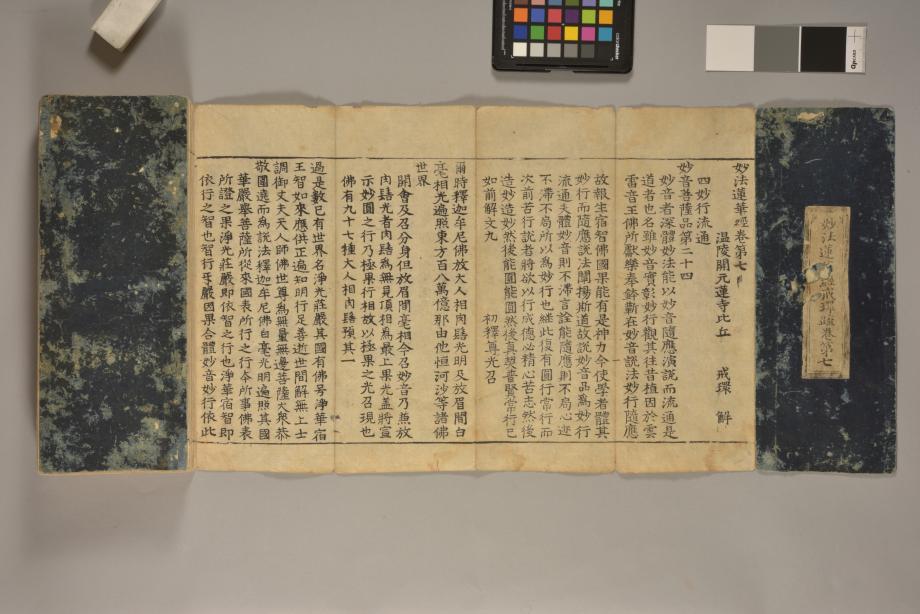 妙法蓮華經戒環疏卷第七
妙法蓮華經卷第七
溫陵開元蓮寺比丘 戒環 解
四妙行流通
妙音菩薩品第二十四
妙音者深體妙法能以妙音隨應演說而流通是
道者也名雖妙音實彰妙行觀其往昔植因於雲
雷音王佛所獻樂奉鉢蘄在妙音說法妙行隨應
故報生宿智佛國果能有是神力今使學者體其
妙行而隨應說法闡揚斯道故說妙音品爲妙行
流通夫體妙音則不滯言詮能隨應則不局心迹
不滯不局所以爲妙行也繼此復有圓行常行而
次前苦行說者將欲以行成德必精心苦志然後
造妙造妙然後能圓能圓然後眞契普賢常行已
如前解文九 初釋尊光召
爾時釋迦牟尼佛放大人相肉髻光明及放眉間白
毫相光遍照東方百八萬億那由他恒河沙等諸佛
世界
開會及召分身但放眉間毫相今召妙音乃兼放
肉髻光者肉髻爲無見頂相爲最上果光盖將宣
示妙圓之行乃極果行相故以極果之光召現也
佛有九十七種大人相肉髻預其一
過是數已有世界名淨光莊嚴其國有佛号淨華宿
王智如來應供正遍知明行足善逝世間解無上士
調御丈夫天人師佛世尊爲無量無邊菩薩大衆恭
敬圍遶而爲說法釋迦牟尼佛白毫光明遍照其國
華嚴擧菩薩所從來國表所行之行今所事佛表
所證之果淨光莊嚴即依智之行也淨華宿智即
依行之智也智行㸦嚴因果合體妙音妙行依此